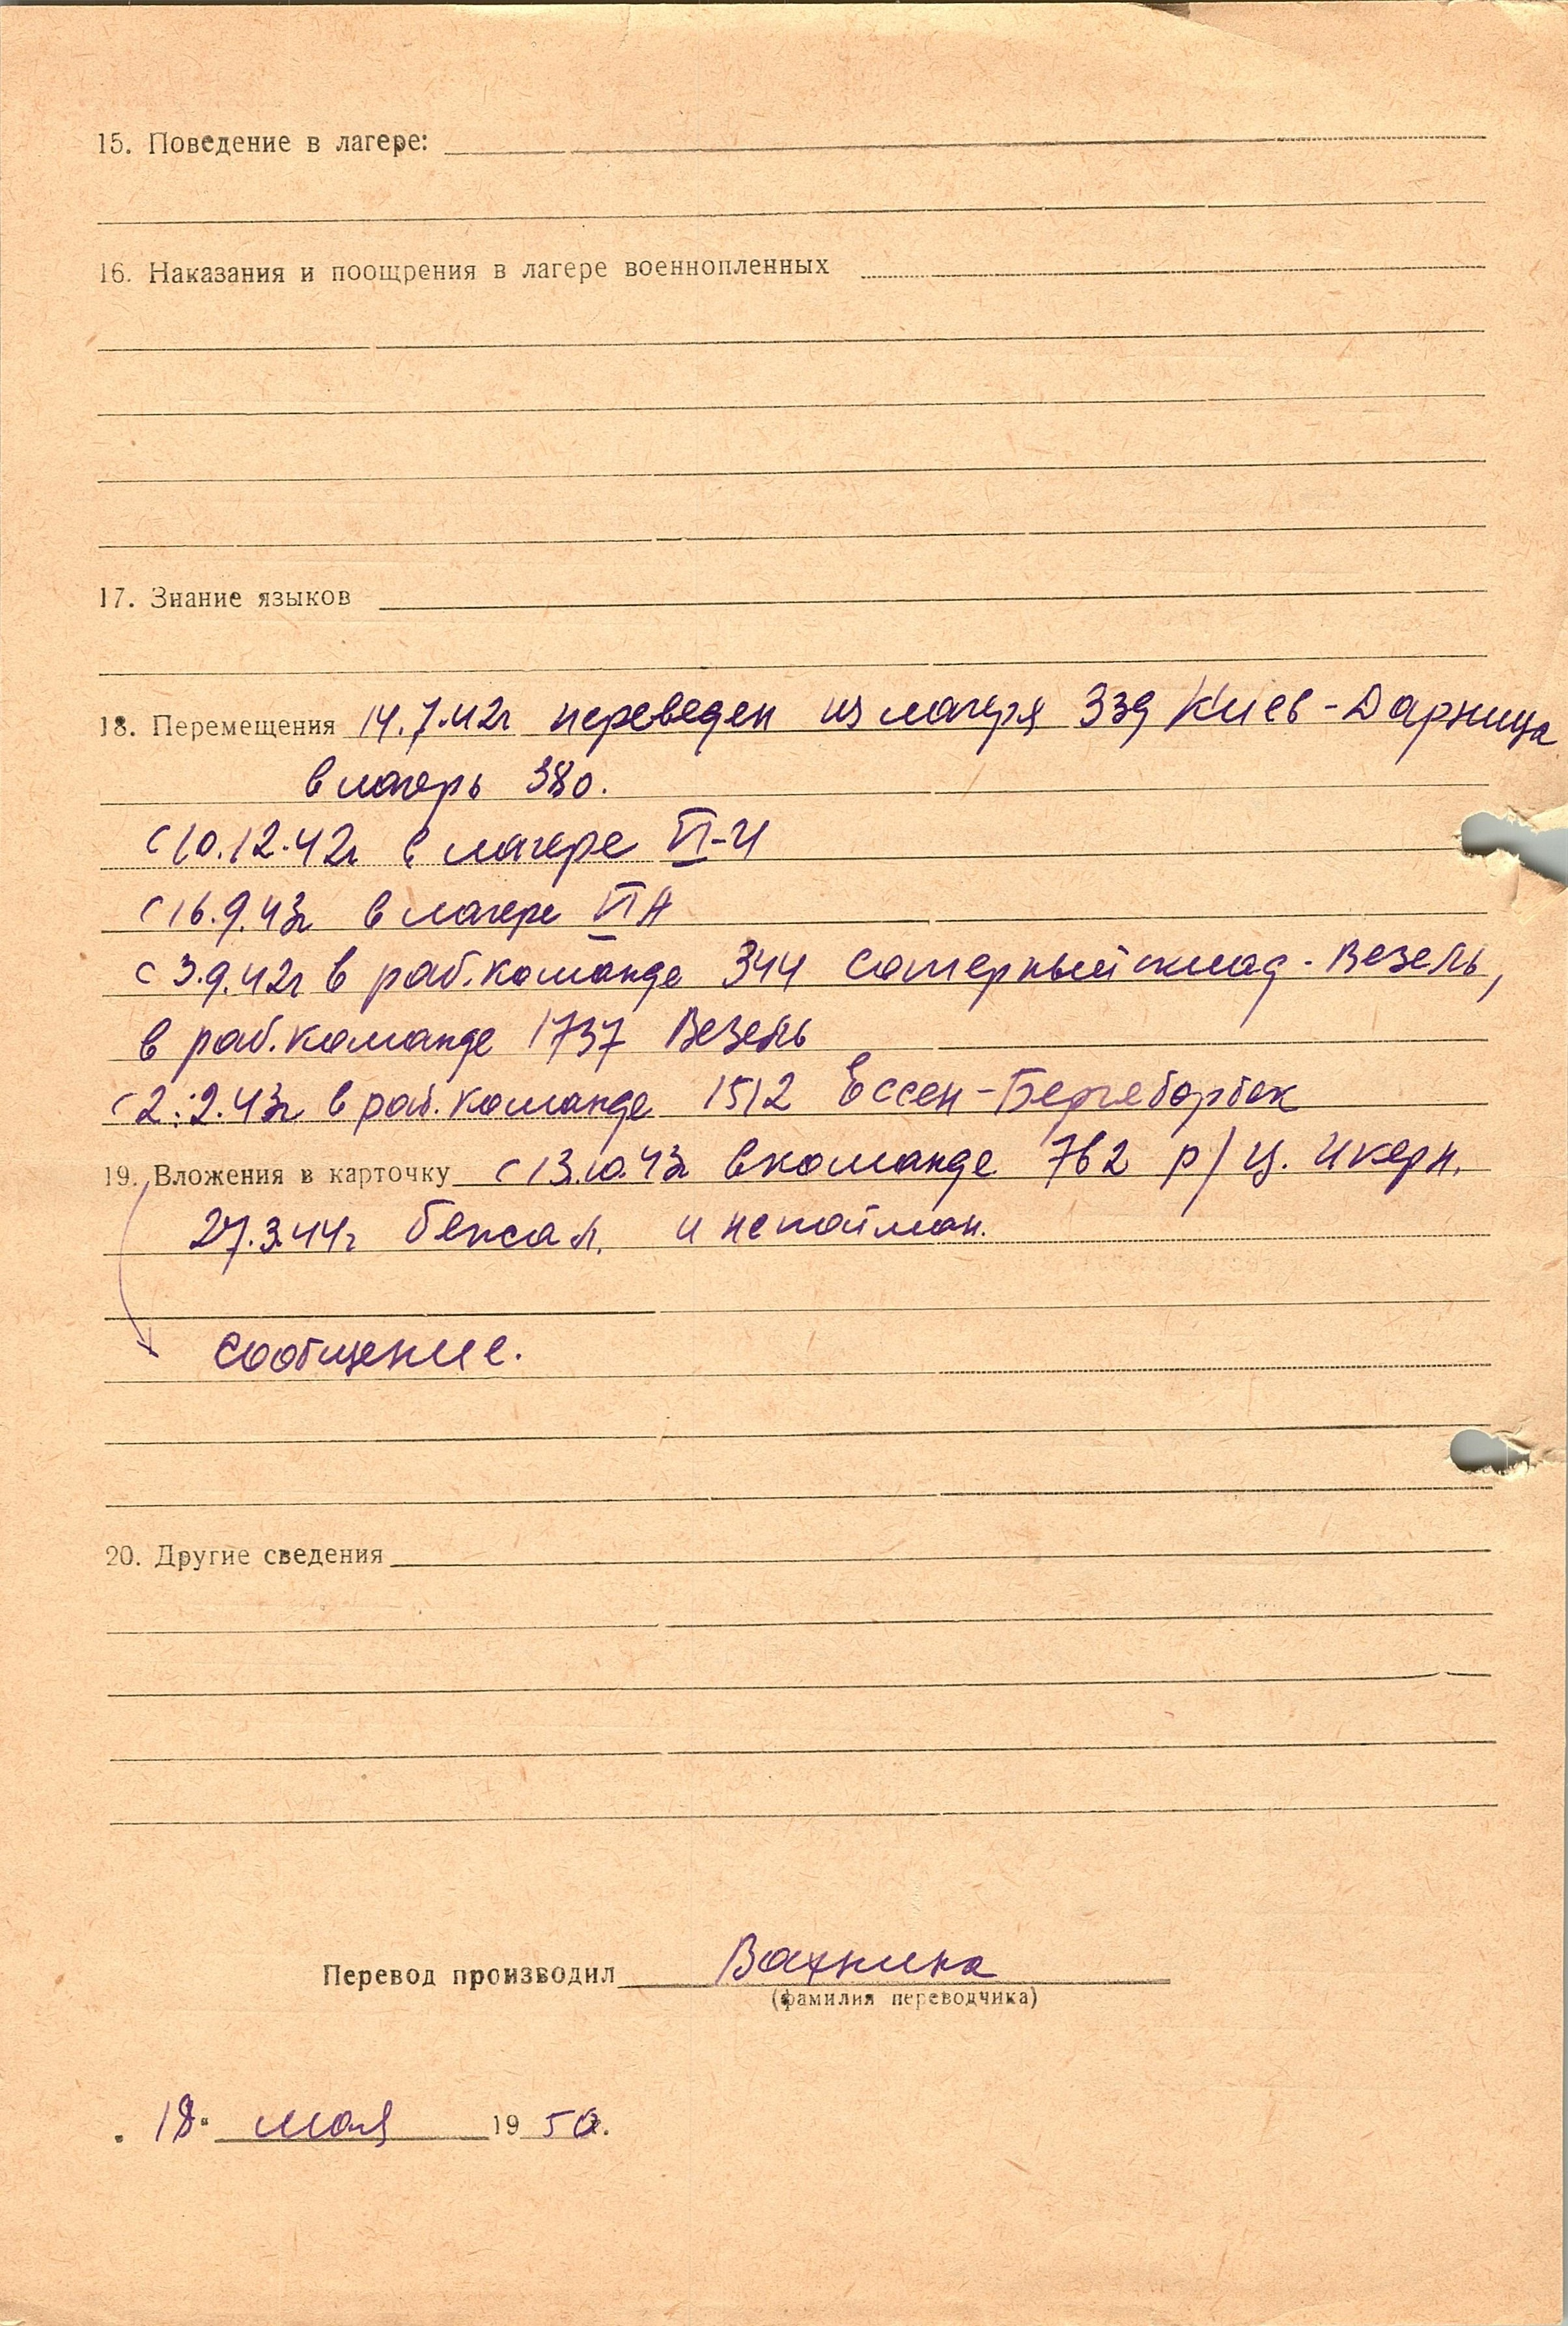 15. Поведение в лагере:
16. Наказания и поощрения в лагере военнопленных
17. Знание языков
18. Перемещения 14.7.42г переведен из лагеря 339 Киев-Дарница
в лагерь 380.
с 10.12.42г в лагере
с 16.9.43г в лагере VI А
с 3.9.42г в раб.команде 344 саперный склад - Везель,
в раб.команде 1737 Везель
в раб.команде 1512 Ессен-Бергеборбек
19. Вложения в карточку с 13.10.43г в команде 762 р/ц.
27.3.44г бежал. и не пойман.
сообщение.
20. Другие сведения
Перевод производил Вахнина
(фамилия переводчика)
18. мая 1950.